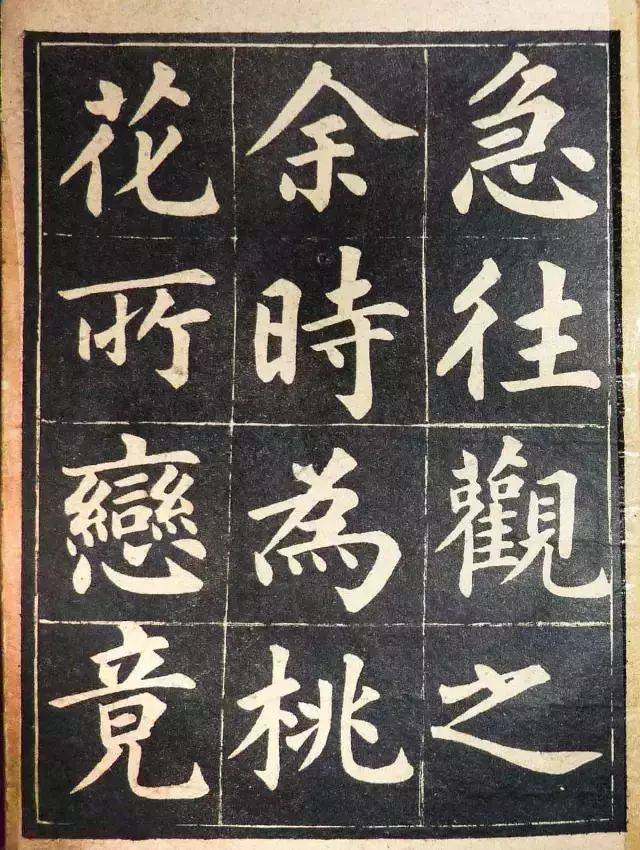 急往觀之
余時為桃
花所戀竟